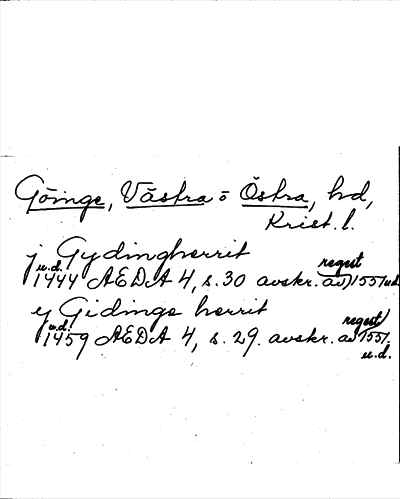 Göinge, Västra o Östra, hd,
Krist. l.
j Gydingherrit
u.d. 1444 AEDA 4, s. 30 avskr. av regest 1551 u.d.
ej Gidings herrit
u.d. 1459 AEDA 4, s. 29. avskr. av regest 1551. u.d.